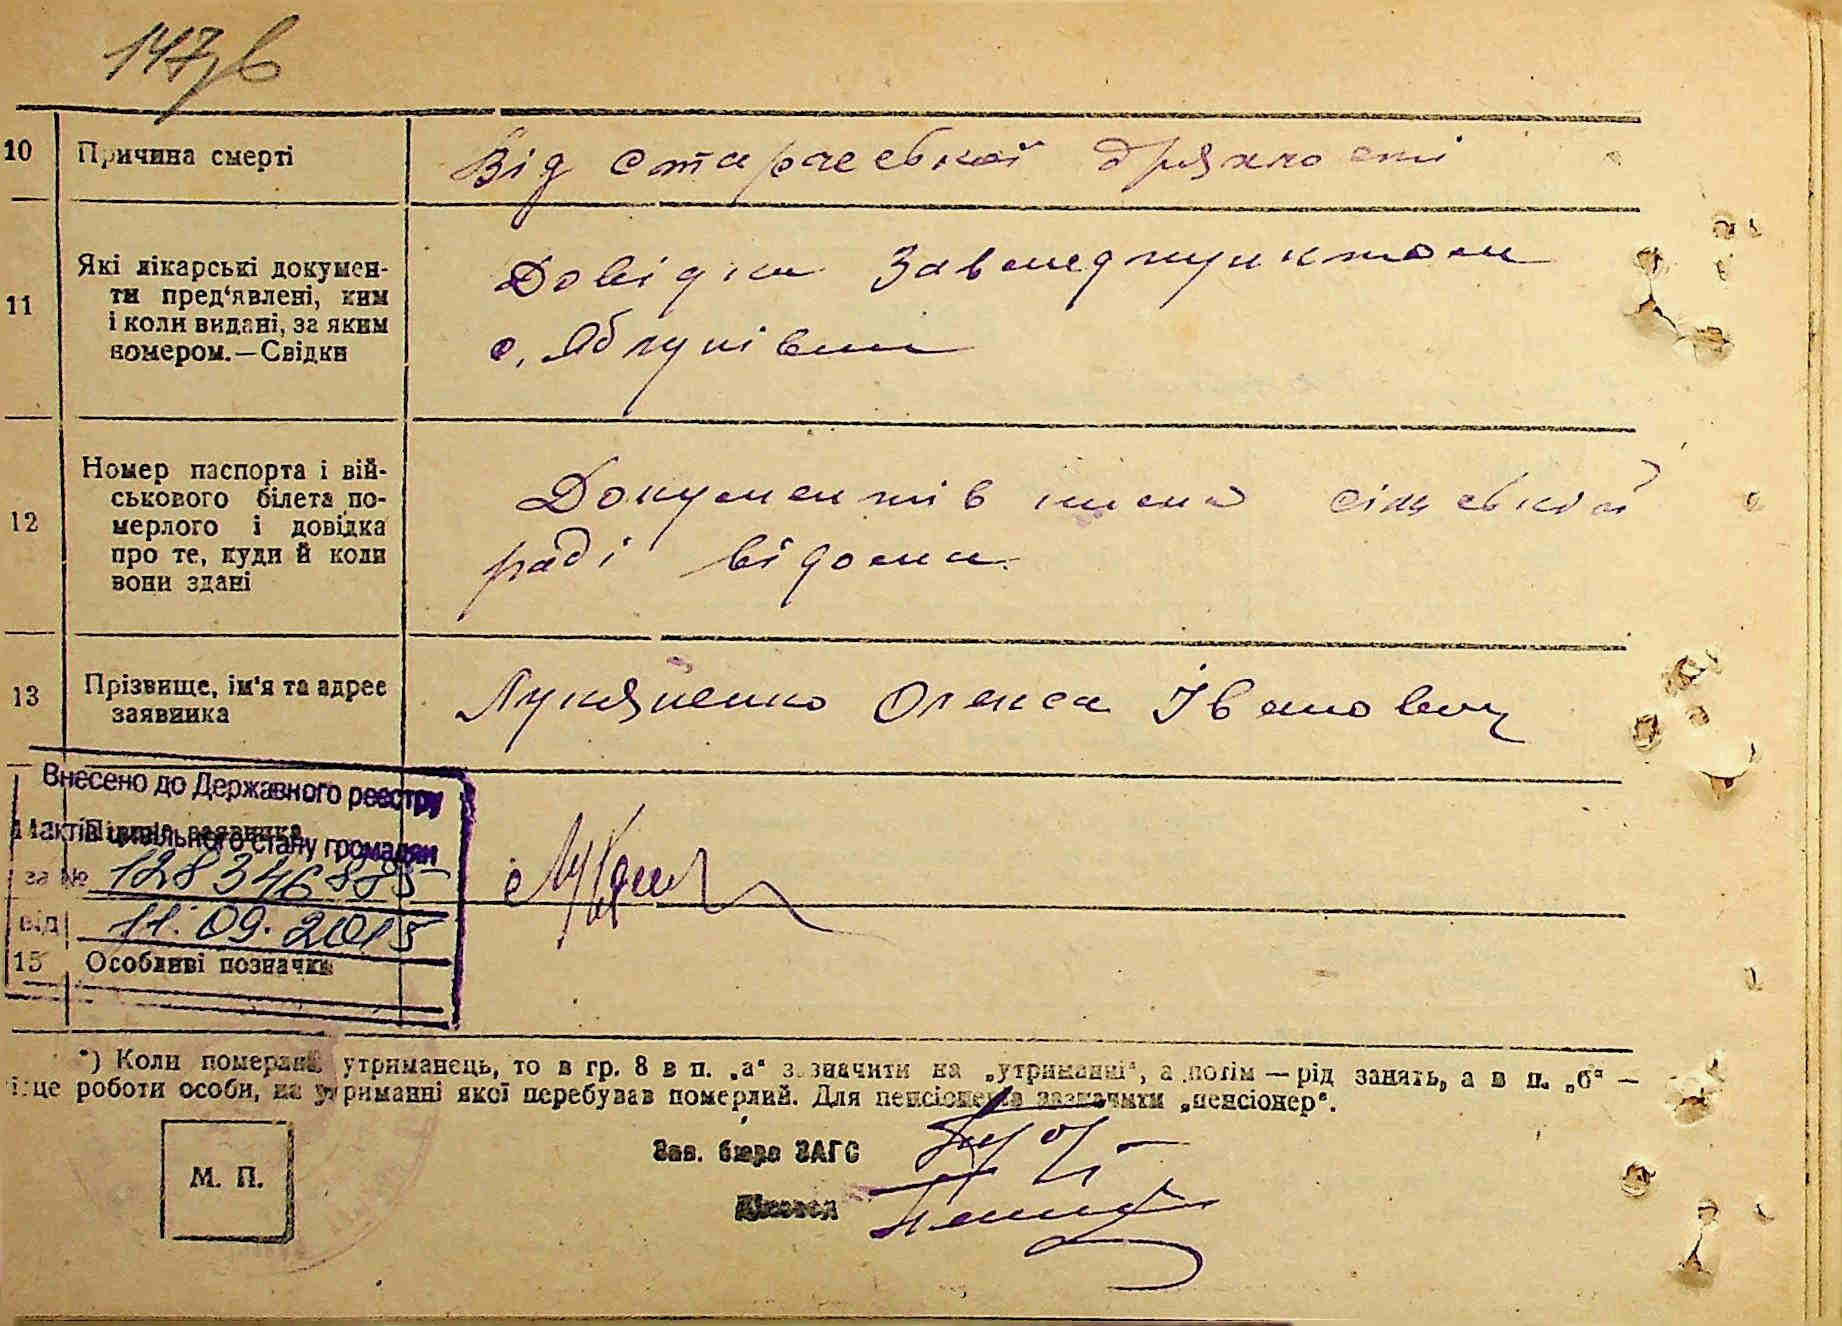 147 б
10 Причина смерті Від старческої дряхлості
11 Які лікарські докумен-
ти пред‘явлені, ким
і коли видані, за яким
номером.—Свідки
Довідка Завмедпунктом
с. Яблунівки
12 Номер паспорта і вій-
ськового білета по-
мерлого і довідка
про те, куди й коли
вони здані
Документів нема сільській
раді відомо
13 Прізвище, ім‘я та адрес
заявника
Лукяненко Олекса Іванович
Внесено до Державного реєстру
14 актів цивільного стану громадян
Підпис заявника
за № 128346885
від 11.09.2015
15 Особливі позначки
*) Коли померлий утриманець, то в гр. 8 в п. „а“ зазначити на „утриманні“, а потім — рід занять, а в п. „б“ —
місце роботи особи, на утриманні якої перебував померлий. Для пенсіонерів зазначити „пенсіонер“.
М. П.
Зав. бюро ЗАГС
Діловод